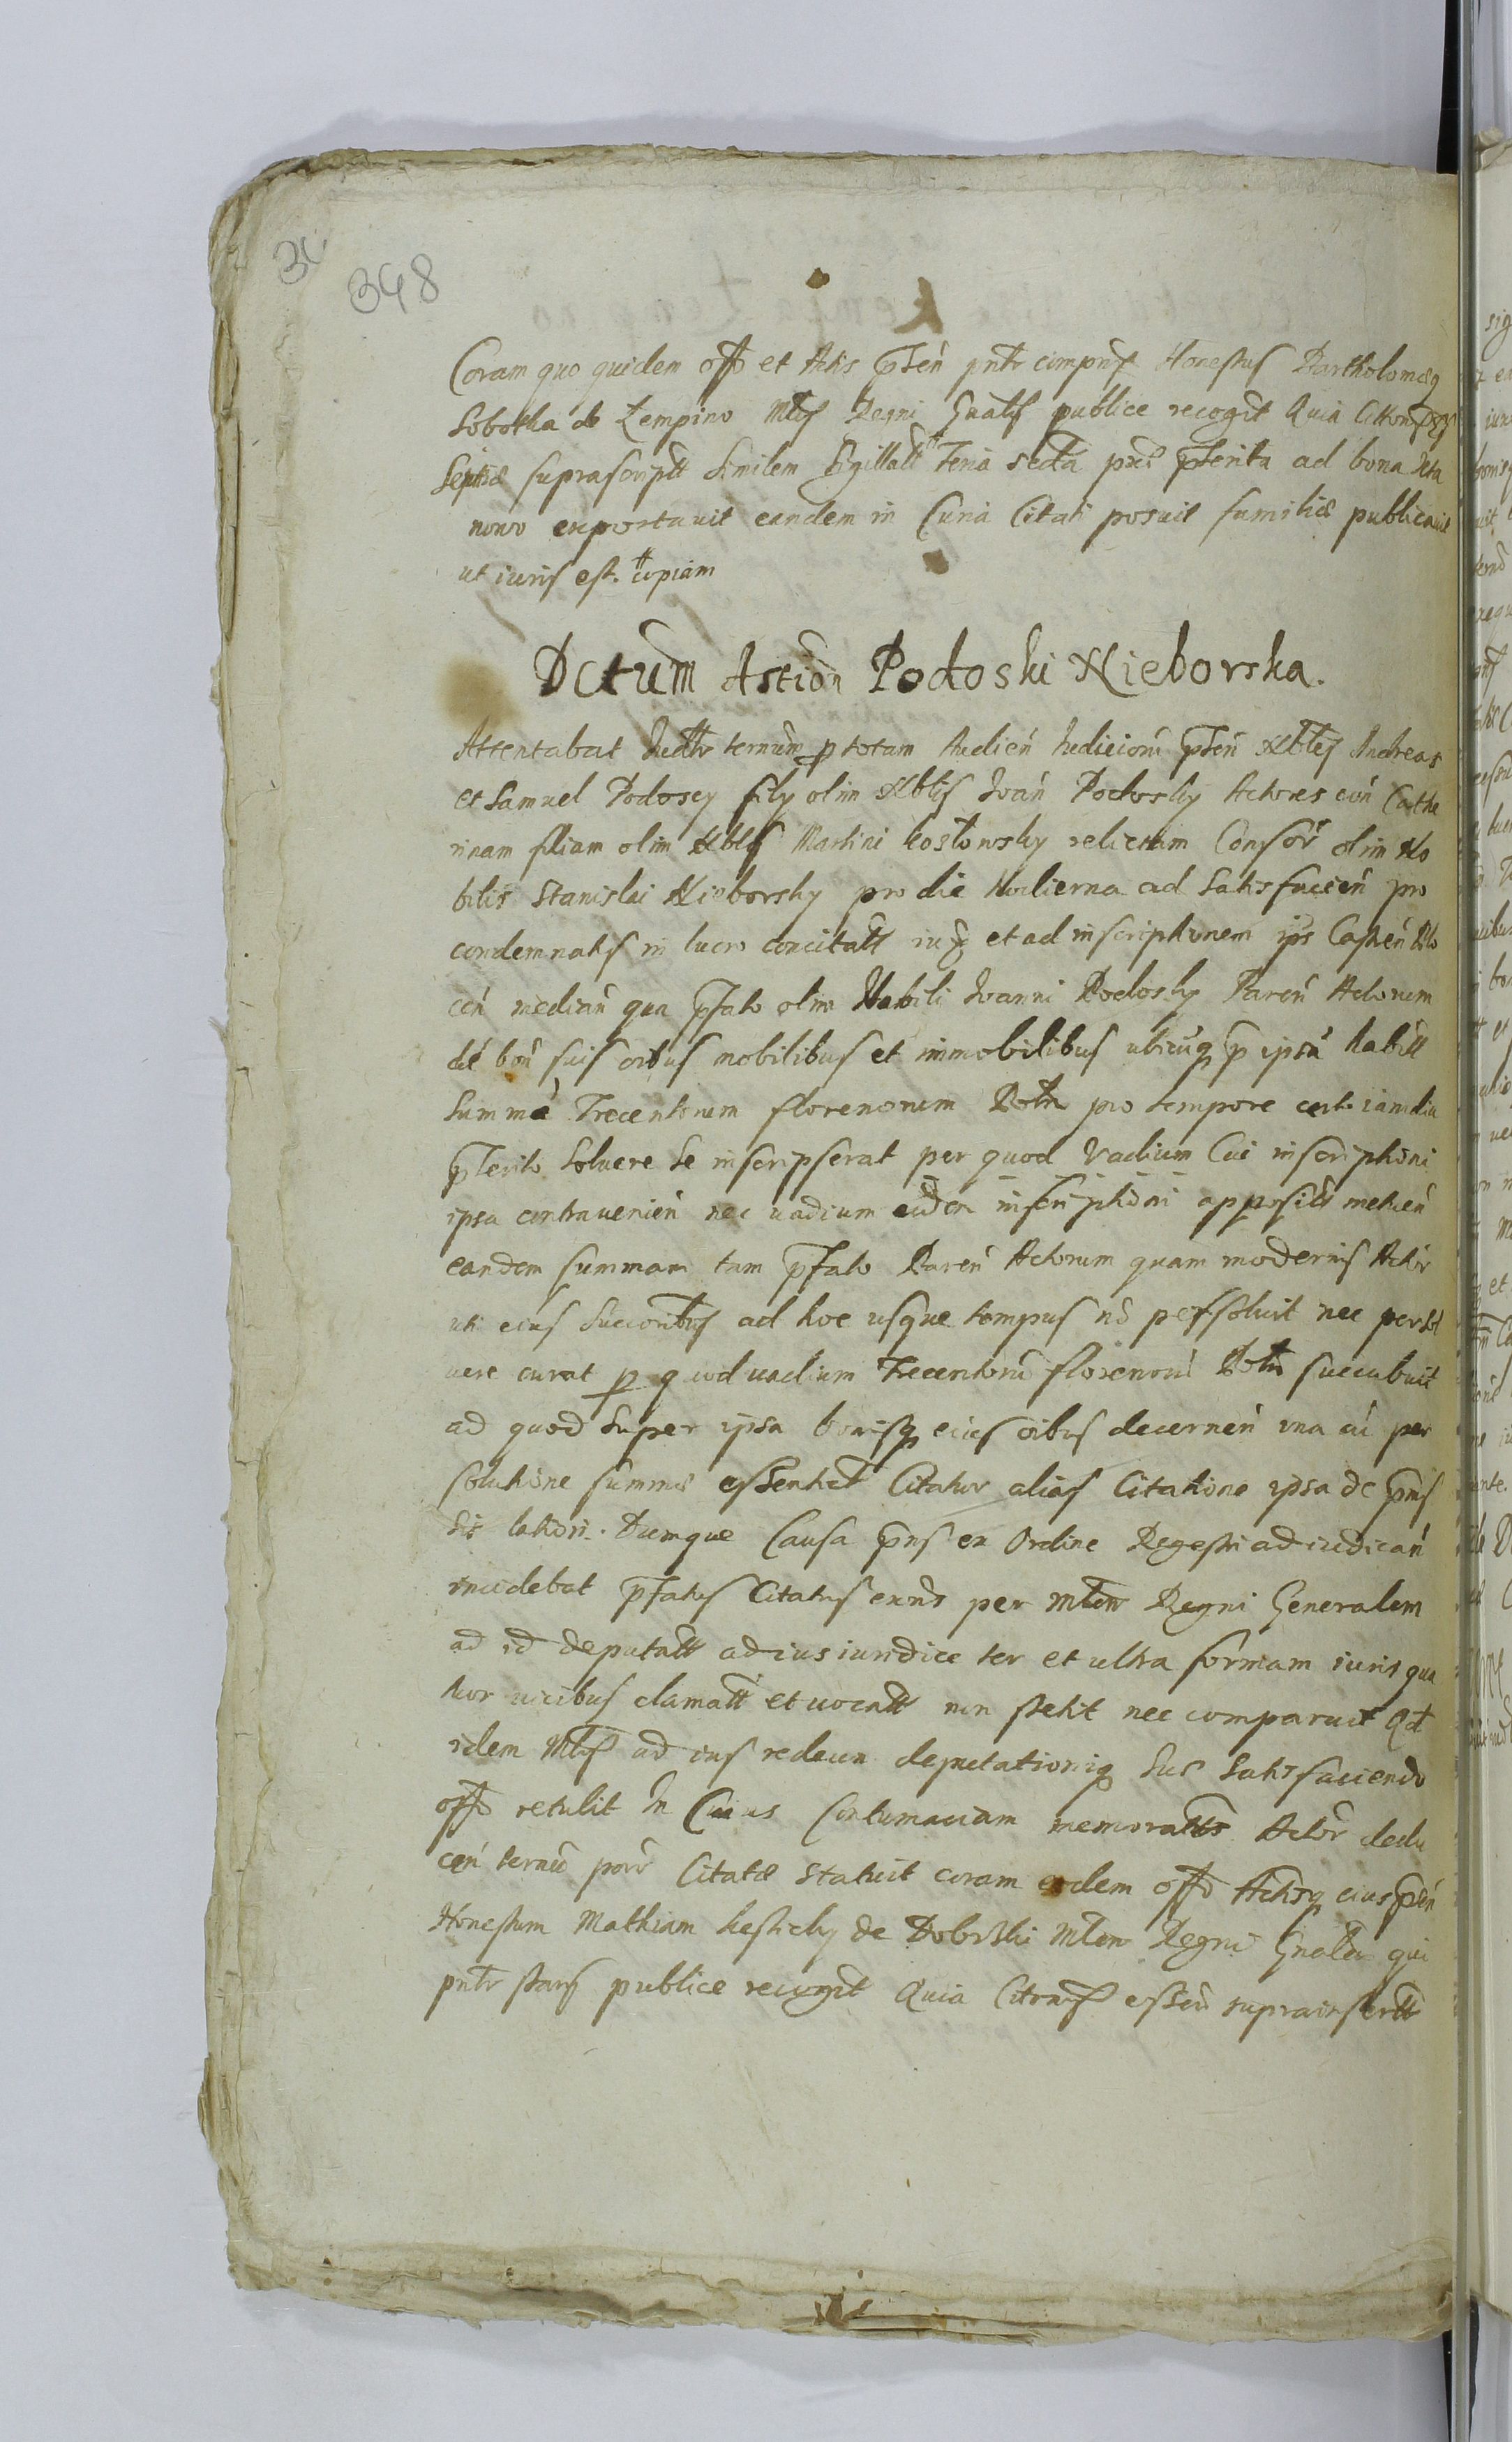 348
Coram quo quidem offo et Actis pnten pntr compns Honestus Bartholomeg
Sobotka de Lempino Mtis Regni Gnalis publice recogt Quia Cittonis
suprascriptt similem Sigillatt Feria secta prt pterita ad bona
nowo exportavit eandem in Curia Citati posuit familiæ publicavit
ut iuris est. tt copiam
Dctum Astion Podoski Nieborska.
Attentabat Iudtr ternum p totam Audien Iudicioru pnten Nbles Andreas
et Samuel Podoscy filÿ olim Nblis Ioan Podosky Actores con Cathe
rinam filiam olim Nblis Martini Kostowsky relictam Consor olim No
bilis Stanislai Nieborsky pro die Hodierna ad Satisfacien pro
condemnatis in lucro concitatt iux et ad inscriptionem ips Castren
cen median qua pfato olim Nobili Ioanni Podosky Paren Actorum
de bon suis oibus mobilibus et immobilibus ubicuq p ipsa habitt
Summa Trecentorum florenorum Poln pro tempore certo iamdiu
pterito Soluere Se inscripserat per quod Vadium Cui inscriptioni
ipsa contravenien nec vadium eidem inscriptioni appositt metuen
eandem summam tam pfato Paren Actorum quam modernis Actor
uti eius Successoribus ad hoc usque tempus no persoluit nec persol
uere curat p quod vadium Trecentoru florenoru Poln succubuit
ad quod super ipsa bonisq eius oibus decernen una cu per
solutione summæ essentiat Citatur alias Citatione ipsa de pmis
sis lationi. Dumque Causa pns ex Ordine Regestri ad iudican
incidebat pfatus Citatus exns per Mtem Regni Generalem
ad id deputatt ad ius iuridice ter et ultra formam iuris qua
tuor vicibus clamatt et vocatt non stetit nec comparuit Qd
idem Mtis ad ius rediens deputationiq Suæ Satisfaciendo
offo retulit In Cuius Contumaciam memoratts Actor dedu
cen ternu poro Citatæ statuit coram eodem offo Actisq eius pnten
Honestum Mathiam de Dobrski Mtem Regni Gnalem qui
pntr stans publice recogit Quia Citonis essen suprainsertt